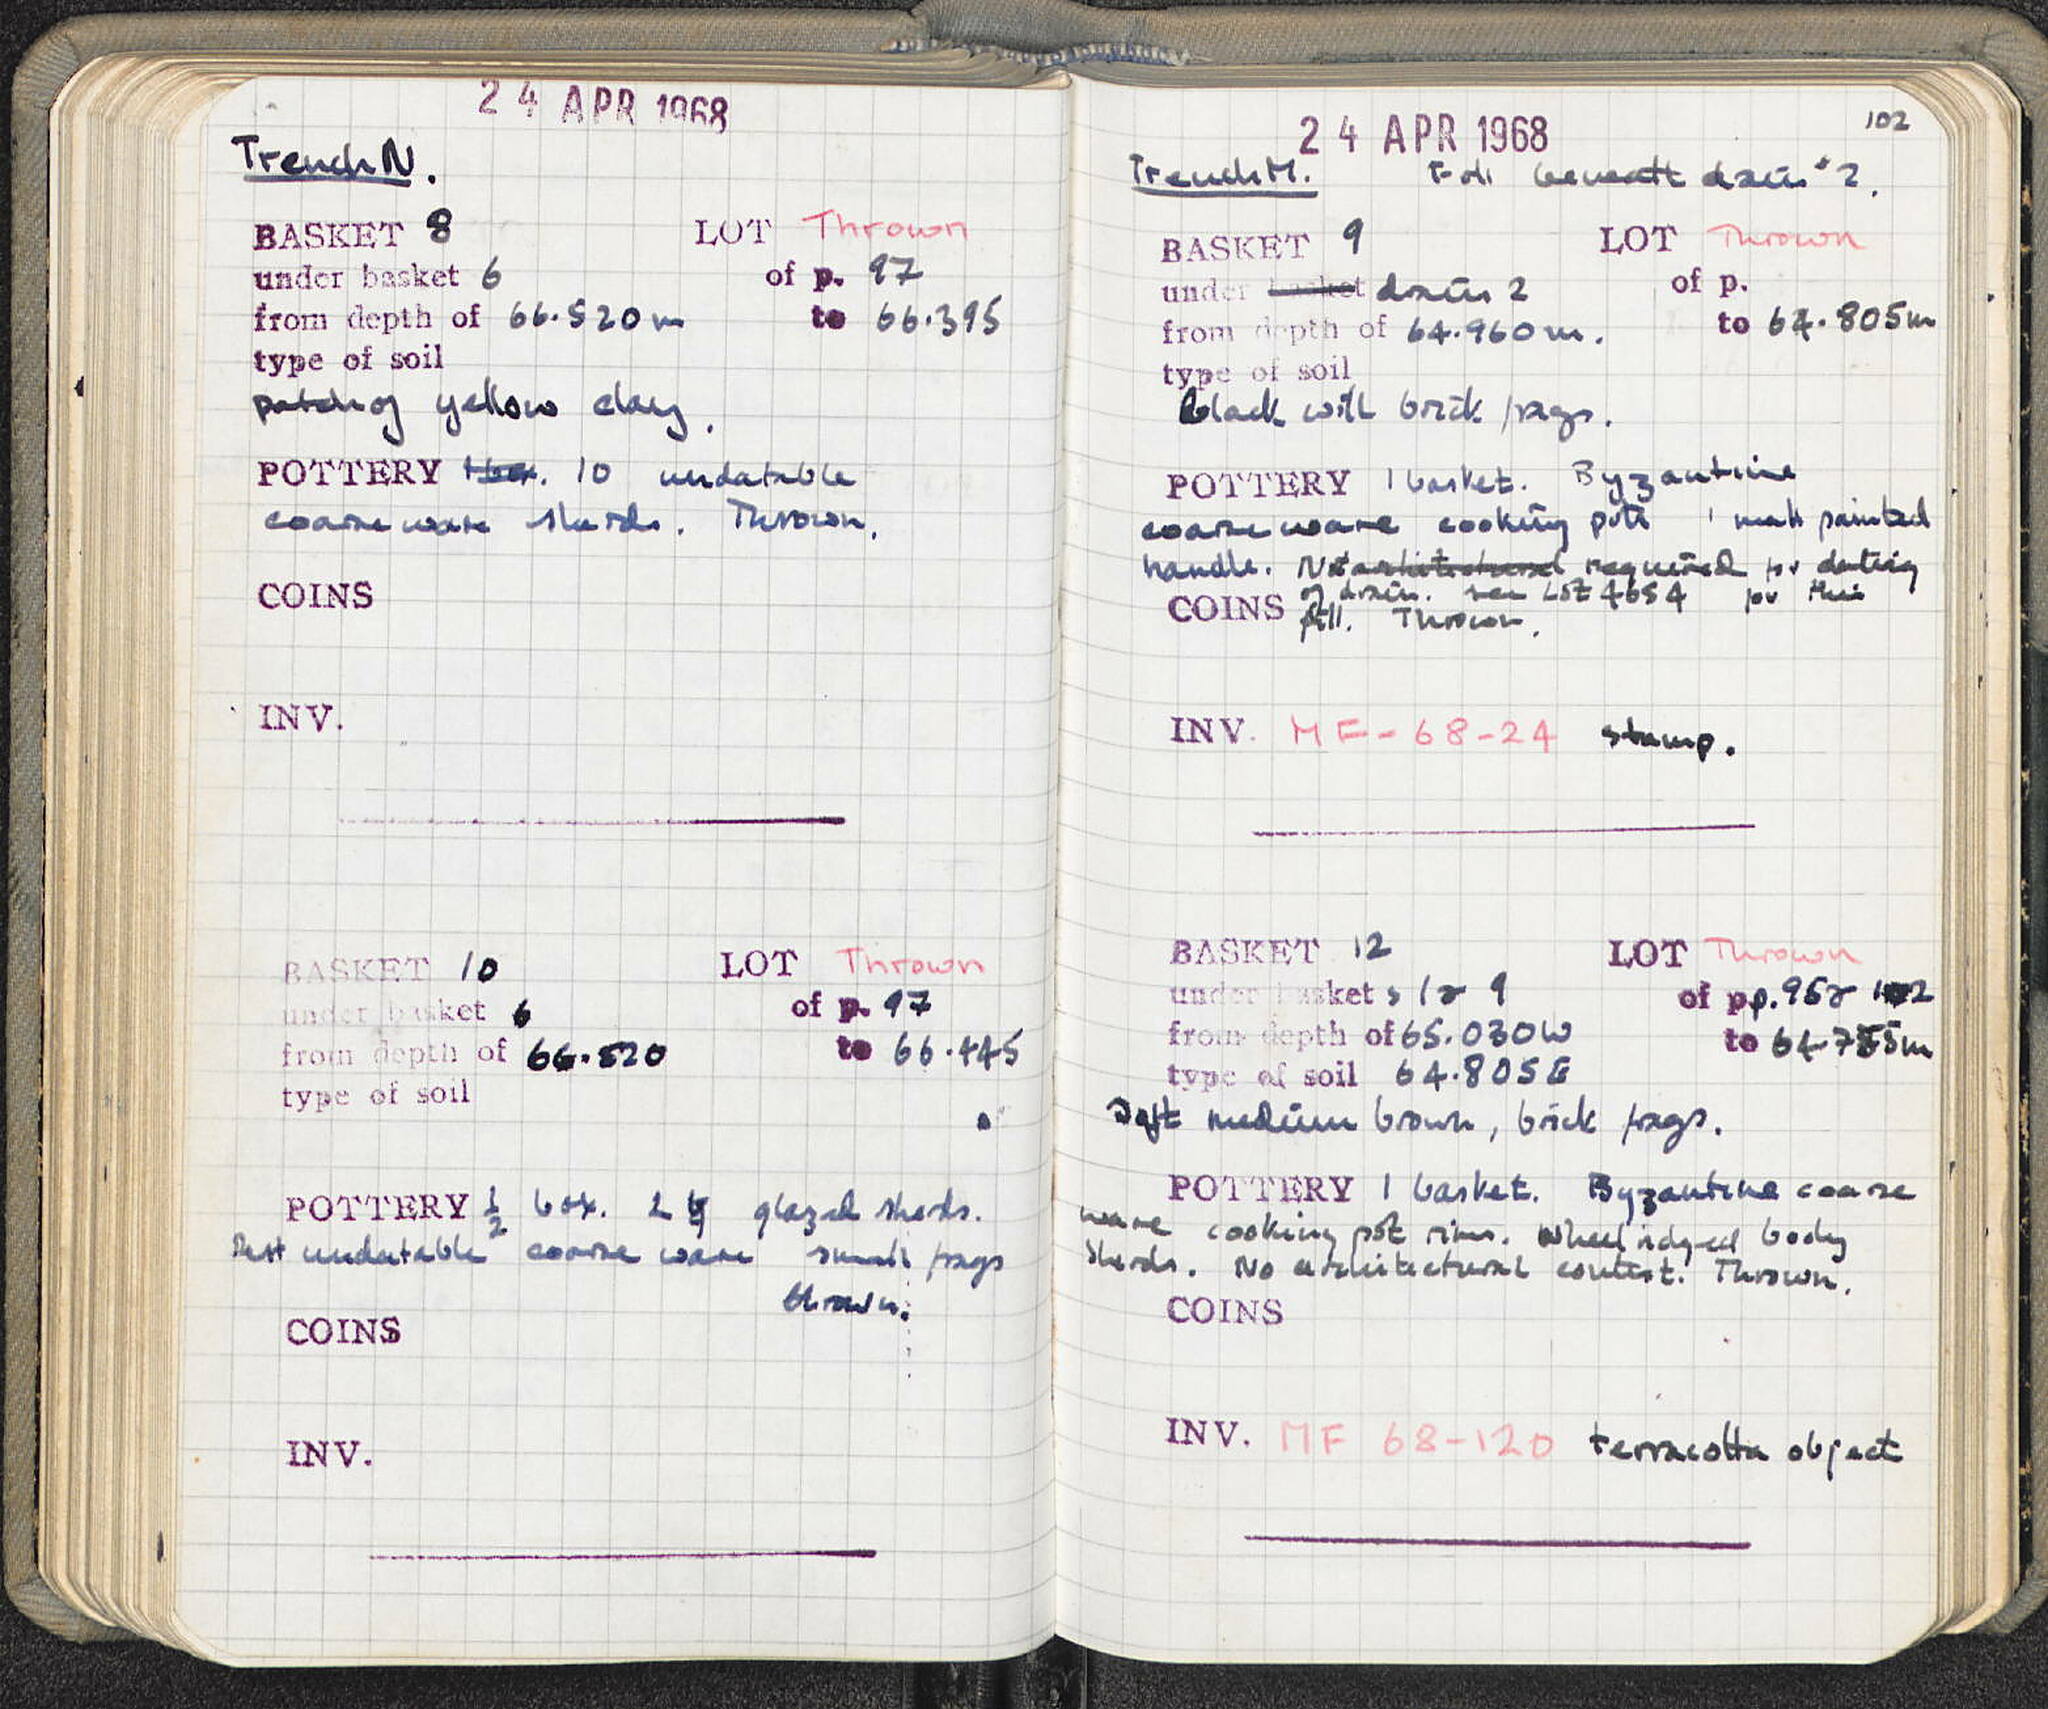 24 APR 1968
Trench N.
BASKET 8 LOT Thrown
under basket 6 of p. 97
from depth of 66.520m to 66.395
type of soil
patch of yellow clay.
POTTERY 1 box. 10 undatable
coarse ware sherds. Thrown.
COINS
INV.
BASKET 10 LOT Thrown
under basket 6 of p. 97
from depth of 66.520 to 66.445
type of soil
POTTERY ½ box. 2 glazed sherds.
Rest undatable coarse ware small frags
thrown.
COINS
INV.
102
24 APR 1968
Trench M. beneath drain #2.
BASKET 9 LOT Thrown
under basket drain 2 of p.
from depth of 64.960m. to 64.805m
type of soil
black with brick frags.
POTTERY 1 basket. Byzantine
coarse ware cooking pots 1 matt painted
handle. Not architectural required for dating
of drain. see Lot 4654 for this
COINS fill. Thrown.
INV. MF-68-24 stamp.
BASKET 12 LOT Thrown
under baskets 1 & 9 of pp. 95 & 102
from depth of 65.030W to 64.755m
type of soil 64.805E
Soft medium brown, brick frags.
POTTERY 1 basket. Byzantine coarse
ware cooking pot rims. Wheelridged body
sherds. No architectural context. Thrown.
COINS
INV. MF 68-120 terracotta object